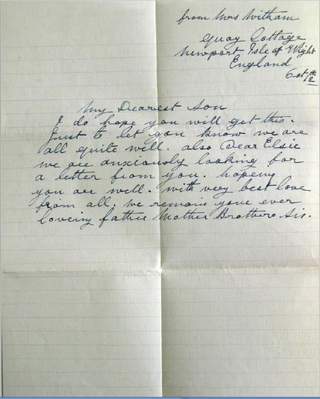 from Mrs Witham
Quay Cottage
Newport Isle of Wight
England
Oct 12th
My Dearest Son
I do hope you will get this.
Just to let you know we are
all quite well. also Dear Elsie
we are anxiously looking for
a letter from you. hopeing
you are well. with very best love
from all, we remain your ever
loveing father Mother Brothers Sis.